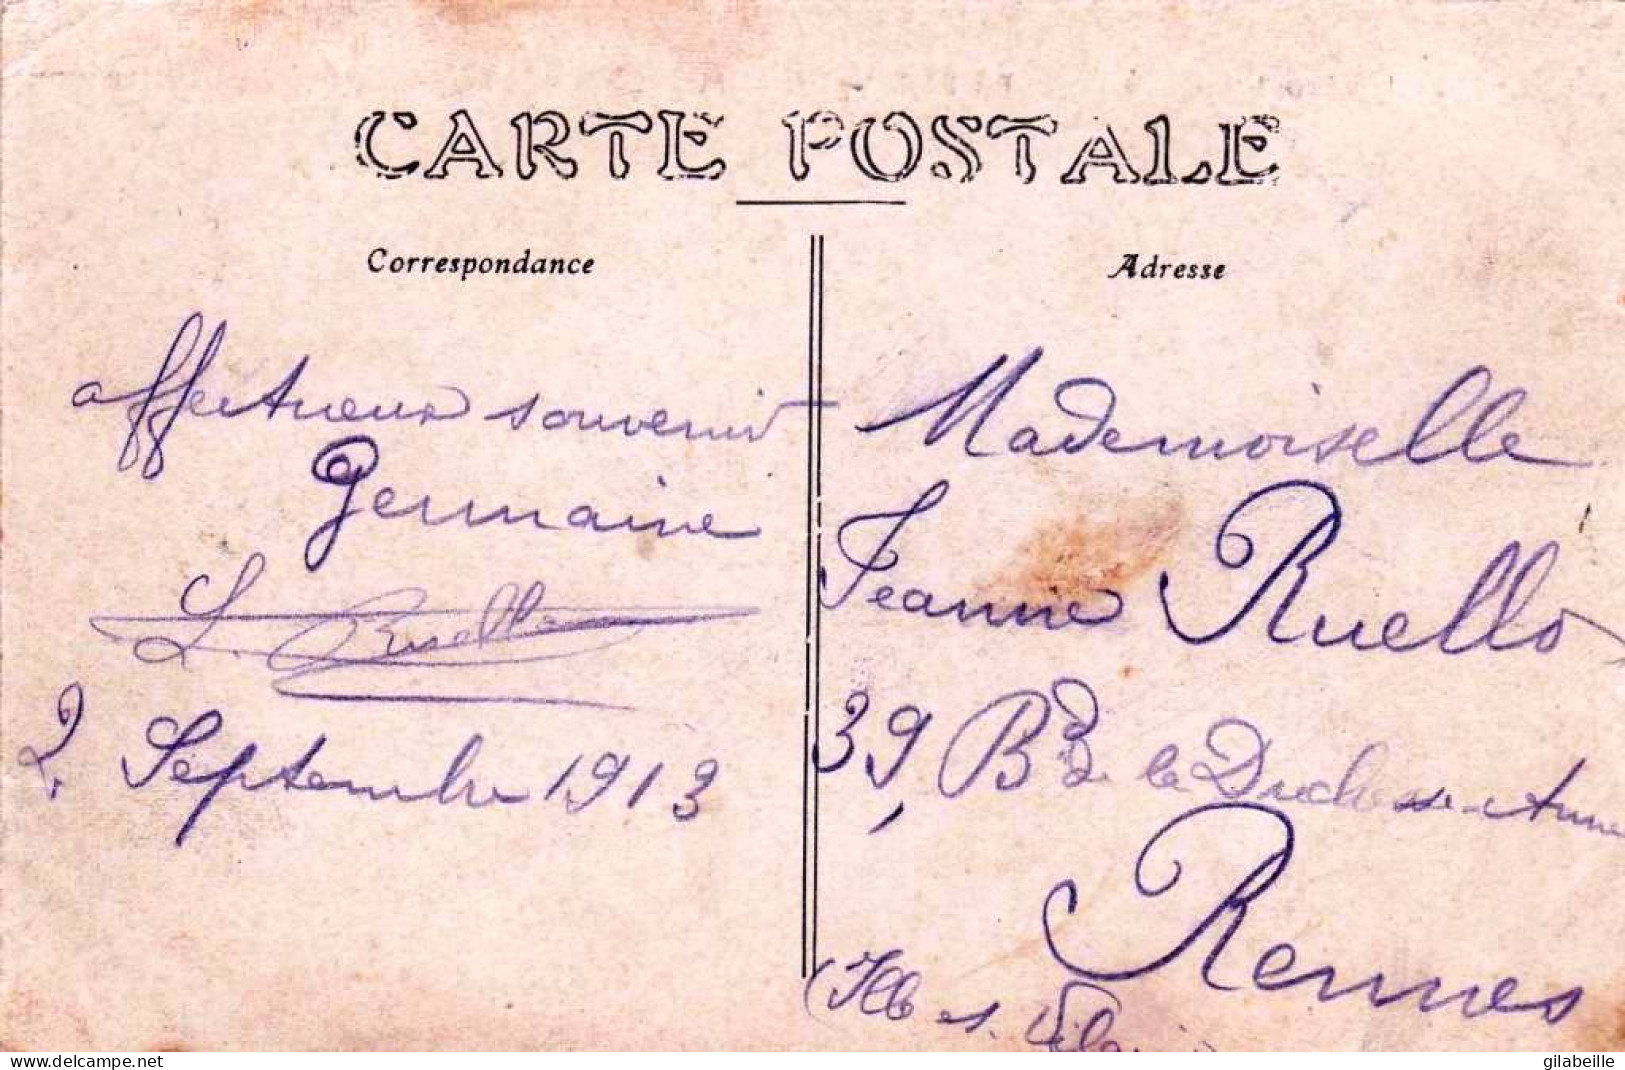 CARTE POSTALE
Correspondance
affectueux souvenir
Germaine
L. Ruello
2 Septembre 1913
Adresse
Mademoiselle
Jeanne Ruello
39, Bd de la Duchesse-Anne
Rennes
(Ille et Vilaine
www.delcampe.net
gilabeille